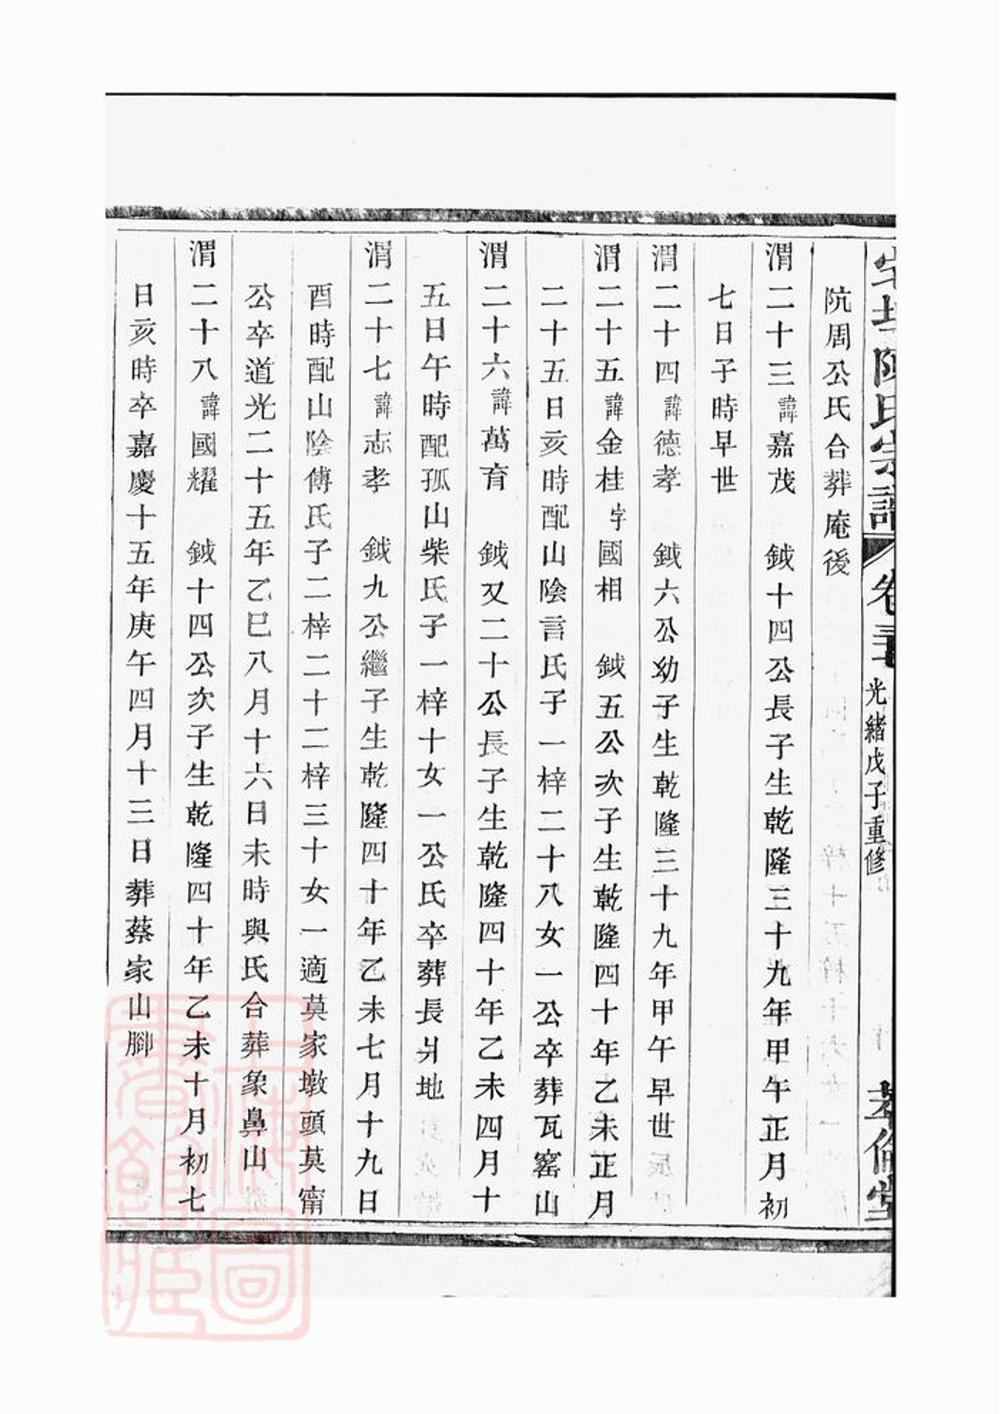 宅埠陳氏宗譜 卷 光緒戊子重修 萃倫堂
阮周公氏合葬庵後
渭二十三諱嘉茂 鉞十四公長子生乾隆三十九年甲午正月初
七日子時早世
渭二十四諱德孝 鉞六公幼子生乾隆三十九年甲午早世
渭二十五諱金桂字國相 鉞五公次子生乾隆四十年乙未正月
二十五日亥時配山陰言氏子一梓二十八女一公卒葬瓦窰山
渭二十六諱萬育 鉞又二十公長子生乾隆四十年乙未四月十
五日午時配孤山柴氏子一梓十女一公氏卒葬長爿地
渭二十七諱志孝 鉞九公繼子生乾隆四十年乙未七月十九日
酉時配山陰傅氏子二梓二十二梓三十女一適莫家墩頭莫甯
公卒道光二十五年乙巳八月十六日未時與氏合葬象鼻山
渭二十八諱國耀 鉞十四公次子生乾隆四十年乙未十月初七
日亥時卒嘉慶十五年庚午四月十三日葬蔡家山腳